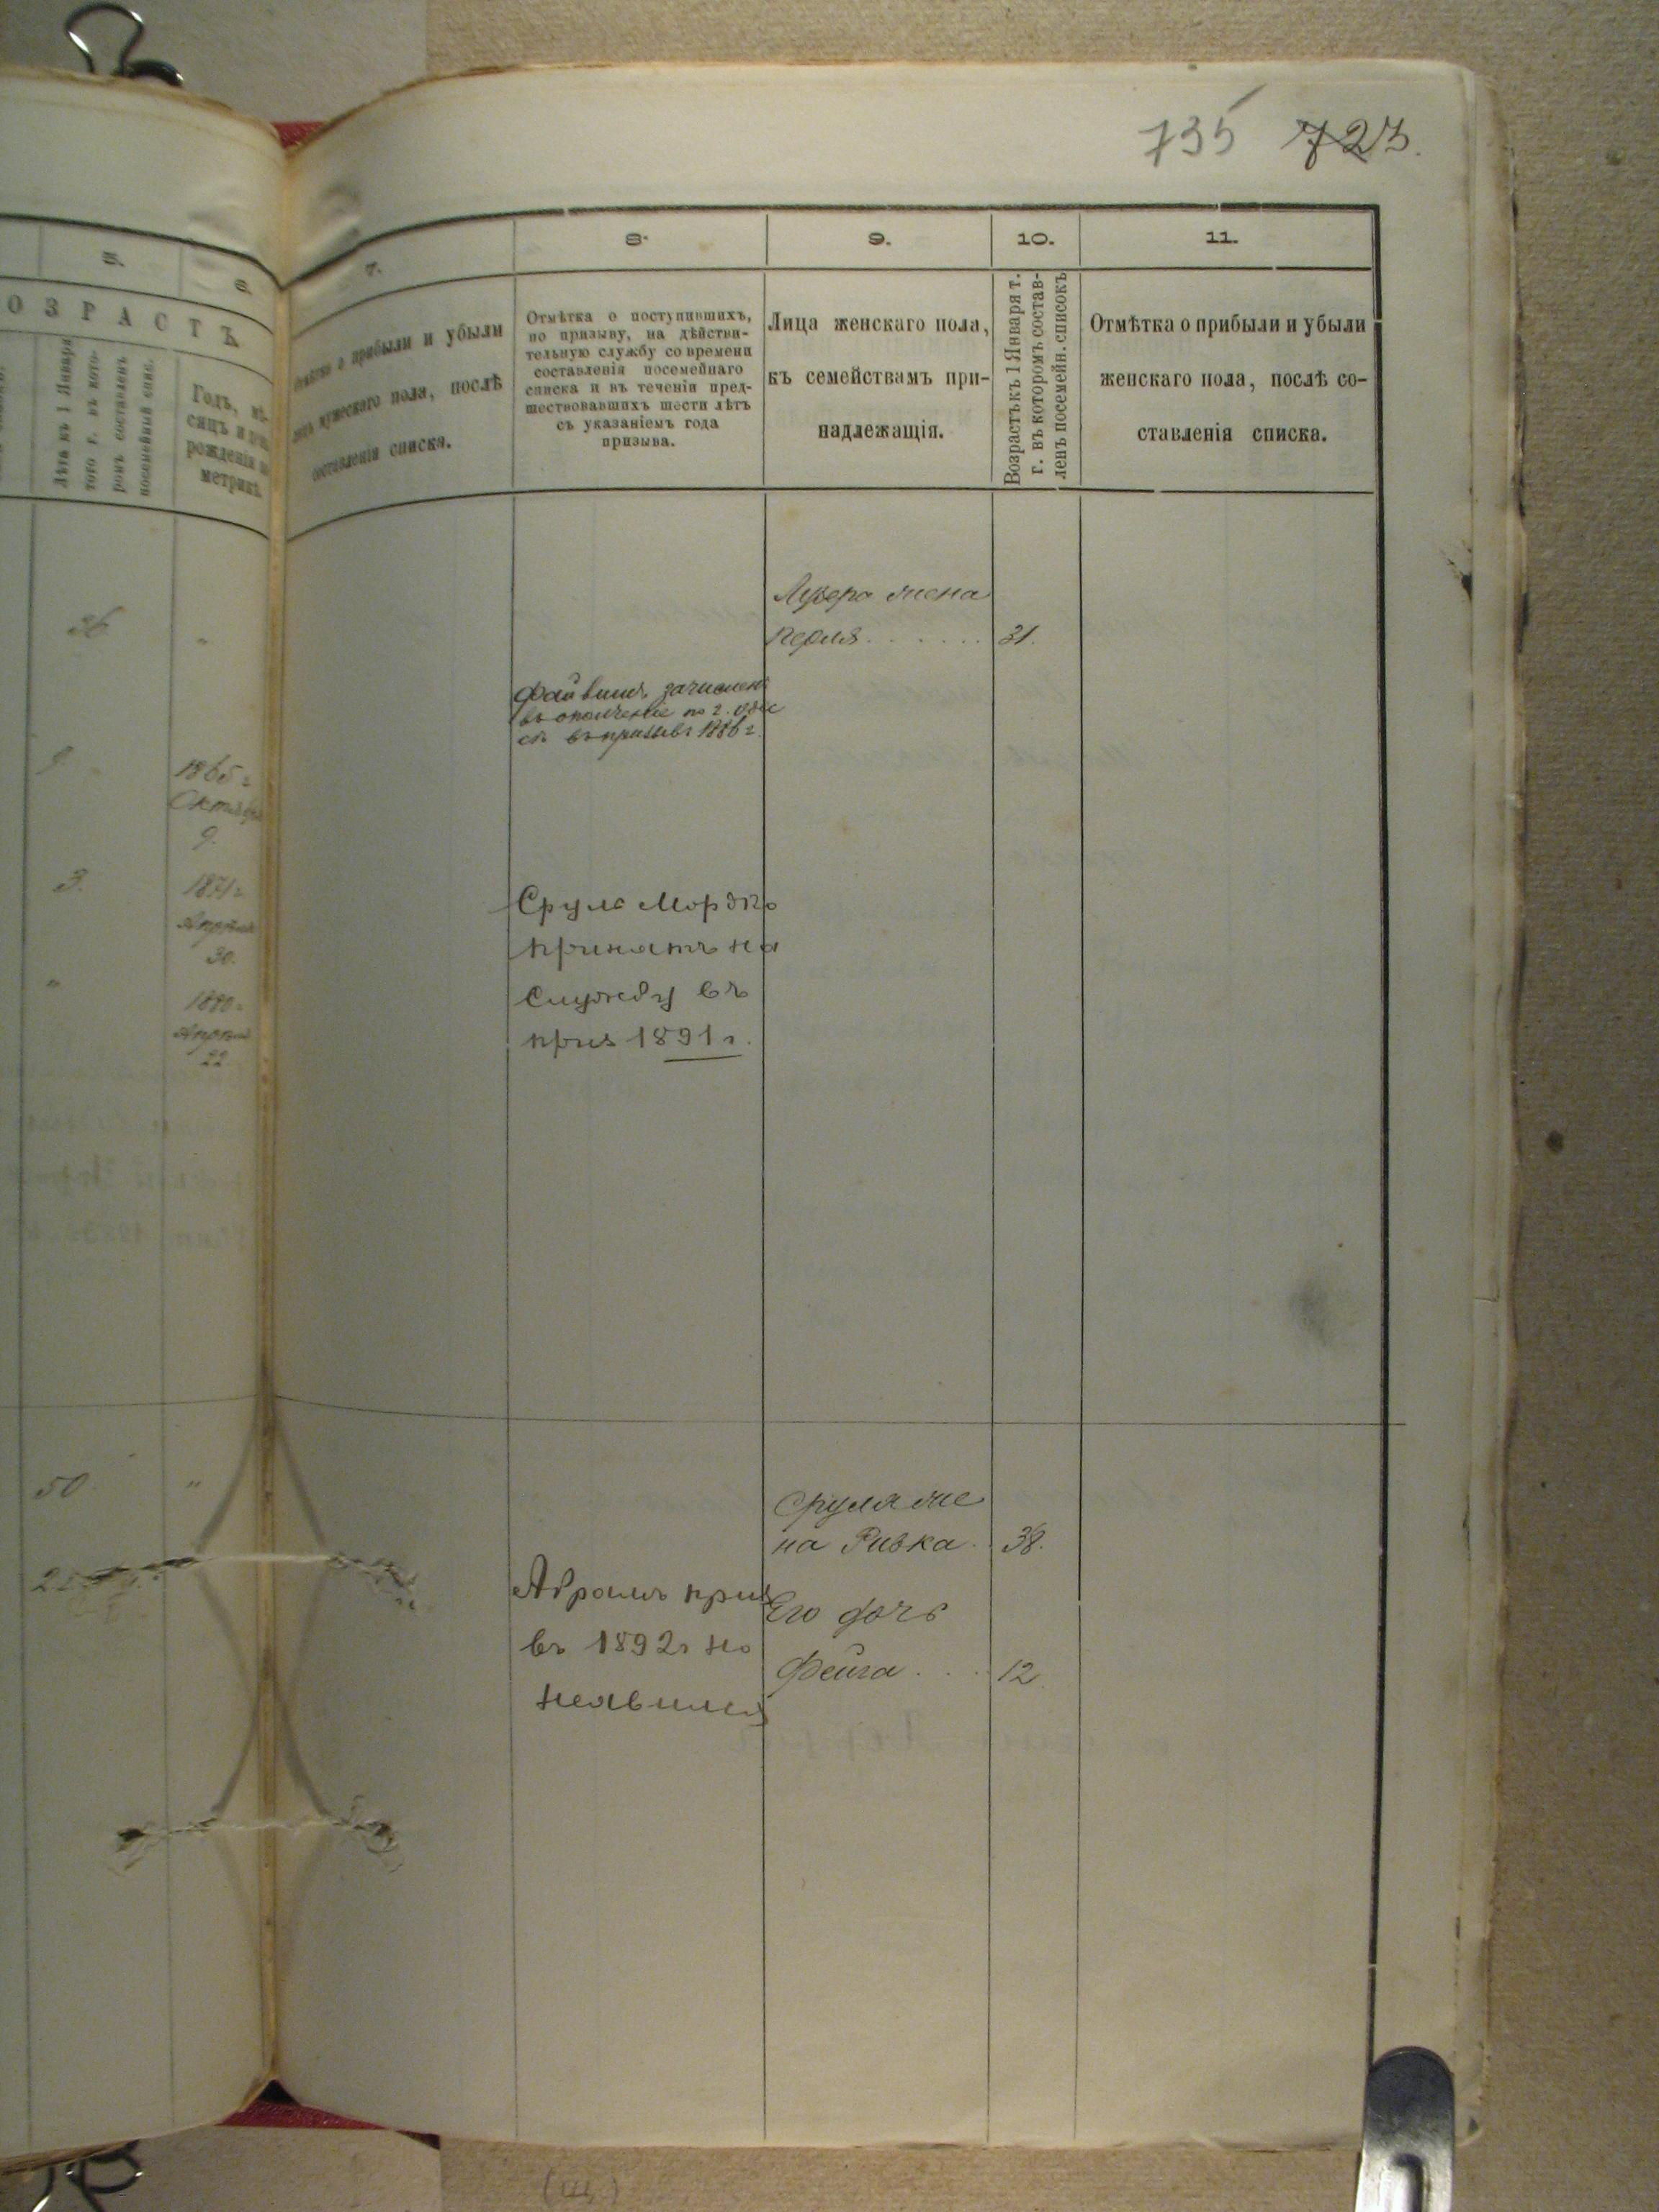 735 723.
5.
6.
7.
8.
9.
10.
11.
ОЗРАСТЪ
Лѣта къ 1 Января
того г. въ кото-
ромъ составленъ
посемейный спис.
Годъ, мѣ-
сяцъ и
рожденія
метрик.
о прибыли и убыли
мужескаго пола, послѣ
составленія списка.
Отмѣтка о поступившихъ,
по призыву, на дѣйстви-
тельную службу со времени
составленія посемейнаго
списка и въ теченіи пред-
шествовавшихъ шести лѣтъ
съ указаніемъ года
призыва.
Лица женскаго пола,
къ семействамъ при-
надлежащія.
Возрастъ къ 1 Января т.
г. въ которомъ состав-
ленъ посемейн. списокъ
Отмѣтка о прибыли и убыли
женскаго пола, послѣ со-
ставленія списка.
36 "
жена
Перля 31.
Файвишъ зачислен
въ ополченіе по 2.
въ призывъ 1886 г.
9 1865 г.
Октября
9.
3. 1871 г.
Апрѣля
30.
" 1880 г.
Апрѣля
22.
Сруль Мордко
принятъ на
Службу въ
приз 1891 г.
50 "
Сруля же
на Ривка 38.
Абрамъ приз
въ 1892 г но
неявился
Его дочь
Фейга 12.